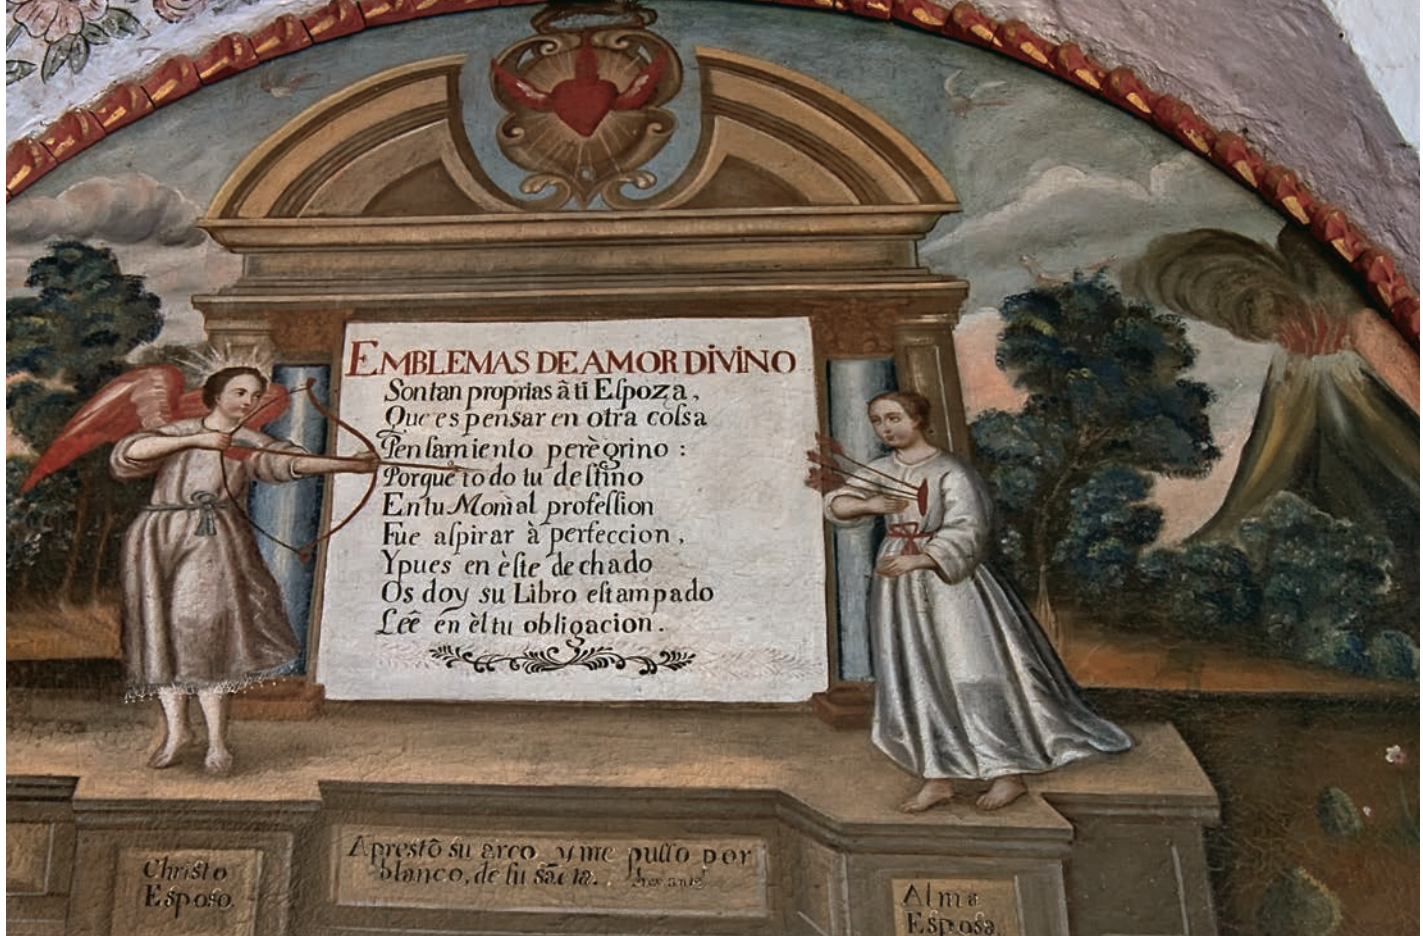 EMBLEMAS DE AMOR DiViNO
Son tan proprias â ti Eſpoza,
Que es pensar en otra coſsa
Penſamiento perègrino :
Porque todo tu deſtino
En tu Moñal profeſſion
Fue aſpirar à perfeccion,
Y pues en èſte dechado
Os doy su Libro eſtampado
Leê en èl tu obligacion.
Christo
Esposo.
Aprestô su arco y me puſſo por
blanco, de ſu sâeta.
Alma
Esposa.